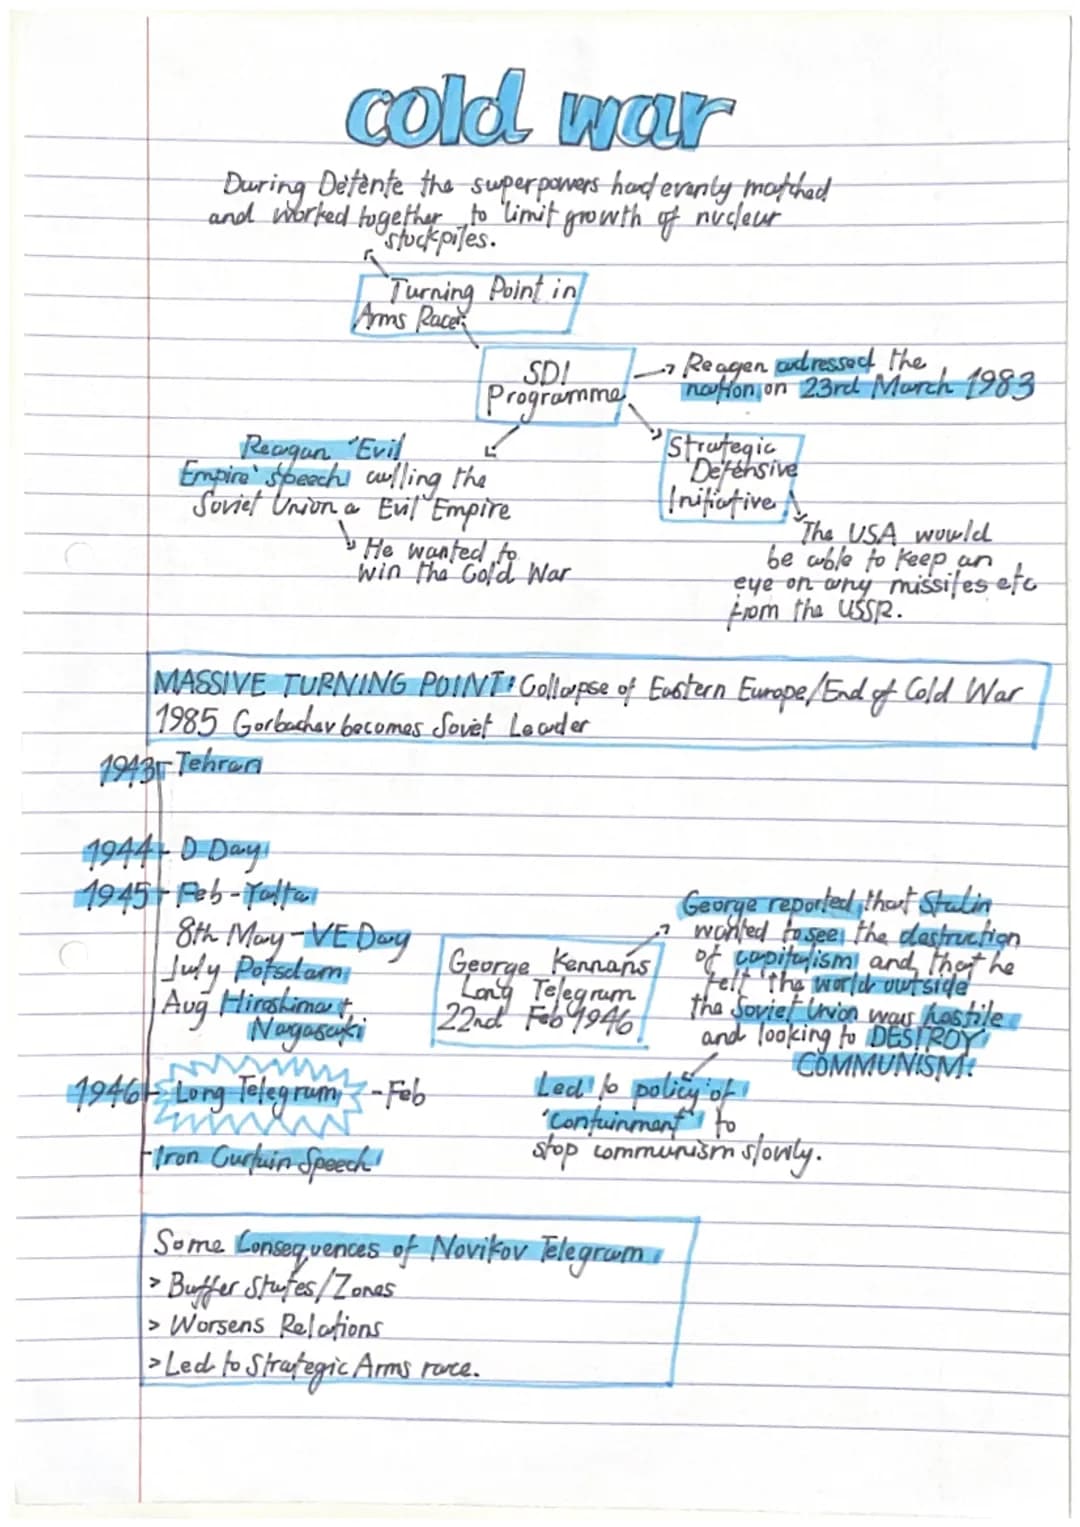 cold war
During Détente the superpowers had evenly matched
and worked together to limit growth of nuclear
stockpiles.
Turning Point in
Arms Race:
SDI
Programme
Reagen adressed the
nation on 23rd March 1983
Reagan 'Evil
Empire' speech calling the
Soviet Union a Evil Empire
He wanted to
win the Cold War
Strategic
Defensive
Initiative
The USA would
be able to keep an
eye on any missiles etc
from the USSR.
MASSIVE TURNING POINT: Collapse of Eastern Europe/End of Cold War
1985 Gorbachav becomes Soviet Leader
1943 Tehran
1944 D Day
1945 Feb-Yalta
8th May - VE Day
July Potsdam
Aug Hiroshima +
Nagasaki
George Kennans
Long Telegram
22nd Feb 1946
George reported that Stalin
wanted to see the destruction
of capitalism and that he
felt 'the world outside
the Soviet Union was hostile
and looking to DESTROY
COMMUNISM.'
1946 Long Telegram - Feb
Led to policy of
'containment' to
stop communism slowly.
Iron Curtain Speech
Some Consequences of Novikov Telegram
> Buffer States/Zones
> Worsens Relations
> Led to Strategic Arms race.